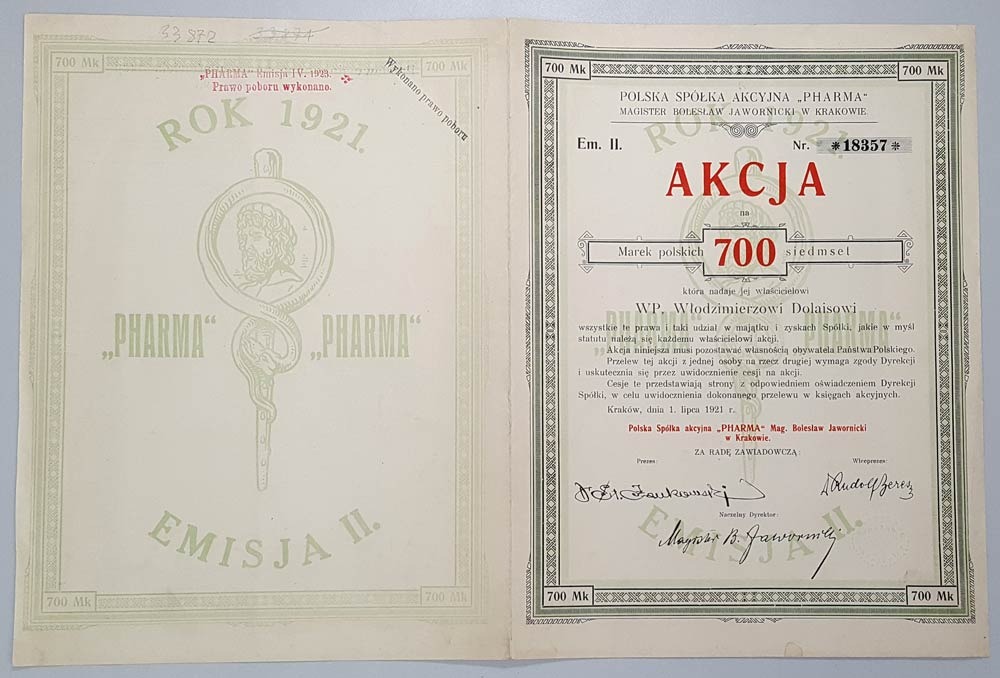 33 872
700 Mk
700 Mk
„PHARMA“ Emisja IV. 1923.
Prawo poboru wykonano.
Wykonano prawo poboru
ROK 1921.
„PHARMA“
„PHARMA“
EMISJA II.
700 Mk
700 Mk
700 Mk
700 Mk
POLSKA SPÓŁKA AKCYJNA „PHARMA“
MAGISTER BOLESŁAW JAWORNICKI W KRAKOWIE.
ROK 1921.
Em. II.
Nr. *18357*
AKCJA
na
Marek polskich 700 siedmset
która nadaje jej właścicielowi
WP. Włodzimierzowi Dolaisowi
„PHARMA“
„PHARMA“
wszystkie te prawa i taki udział w majątku i zyskach Spółki, jakie w myśl
statutu należą się każdemu właścicielowi akcji.
Akcja niniejsza musi pozostawać własnością obywatela Państwa Polskiego.
Przelew tej akcji z jednej osoby na rzecz drugiej wymaga zgody Dyrekcji
i uskutecznia się przez uwidocznienie cesji na akcji.
Cesje te przedstawiają strony z odpowiedniem oświadczeniem Dyrekcji
Spółki, w celu uwidocznienia dokonanego przelewu w księgach akcyjnych.
Kraków, dnia 1. lipca 1921 r.
Polska Spółka akcyjna „PHARMA“ Mag. Bolesław Jawornicki
w Krakowie.
ZA RADĘ ZAWIADOWCZĄ:
Prezes:
Wiceprezes:
Naczelny Dyrektor:
Magister B. Jawornicki
EMISJA II.
700 Mk
700 Mk